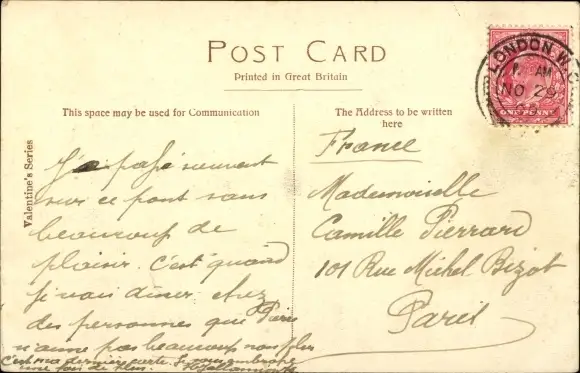 POST CARD
Printed in Great Britain
This space may be used for Communication
The Address to be written
here
Valentine's Series
LONDON.W.C
AM
NO 29
ONE PENNY
J'ai passé souvent
sur ce pont sans
beaucoup de
plaisir. c'est quand
je vais dîner chez
des personnes que Paris
n'aime pas beaucoup non plus
C'est ma dernière carte. Je vous embrasse
une fois de plus.
France
Mademoiselle
Camille Pierrard
101 Rue Michel Bizot
Paris